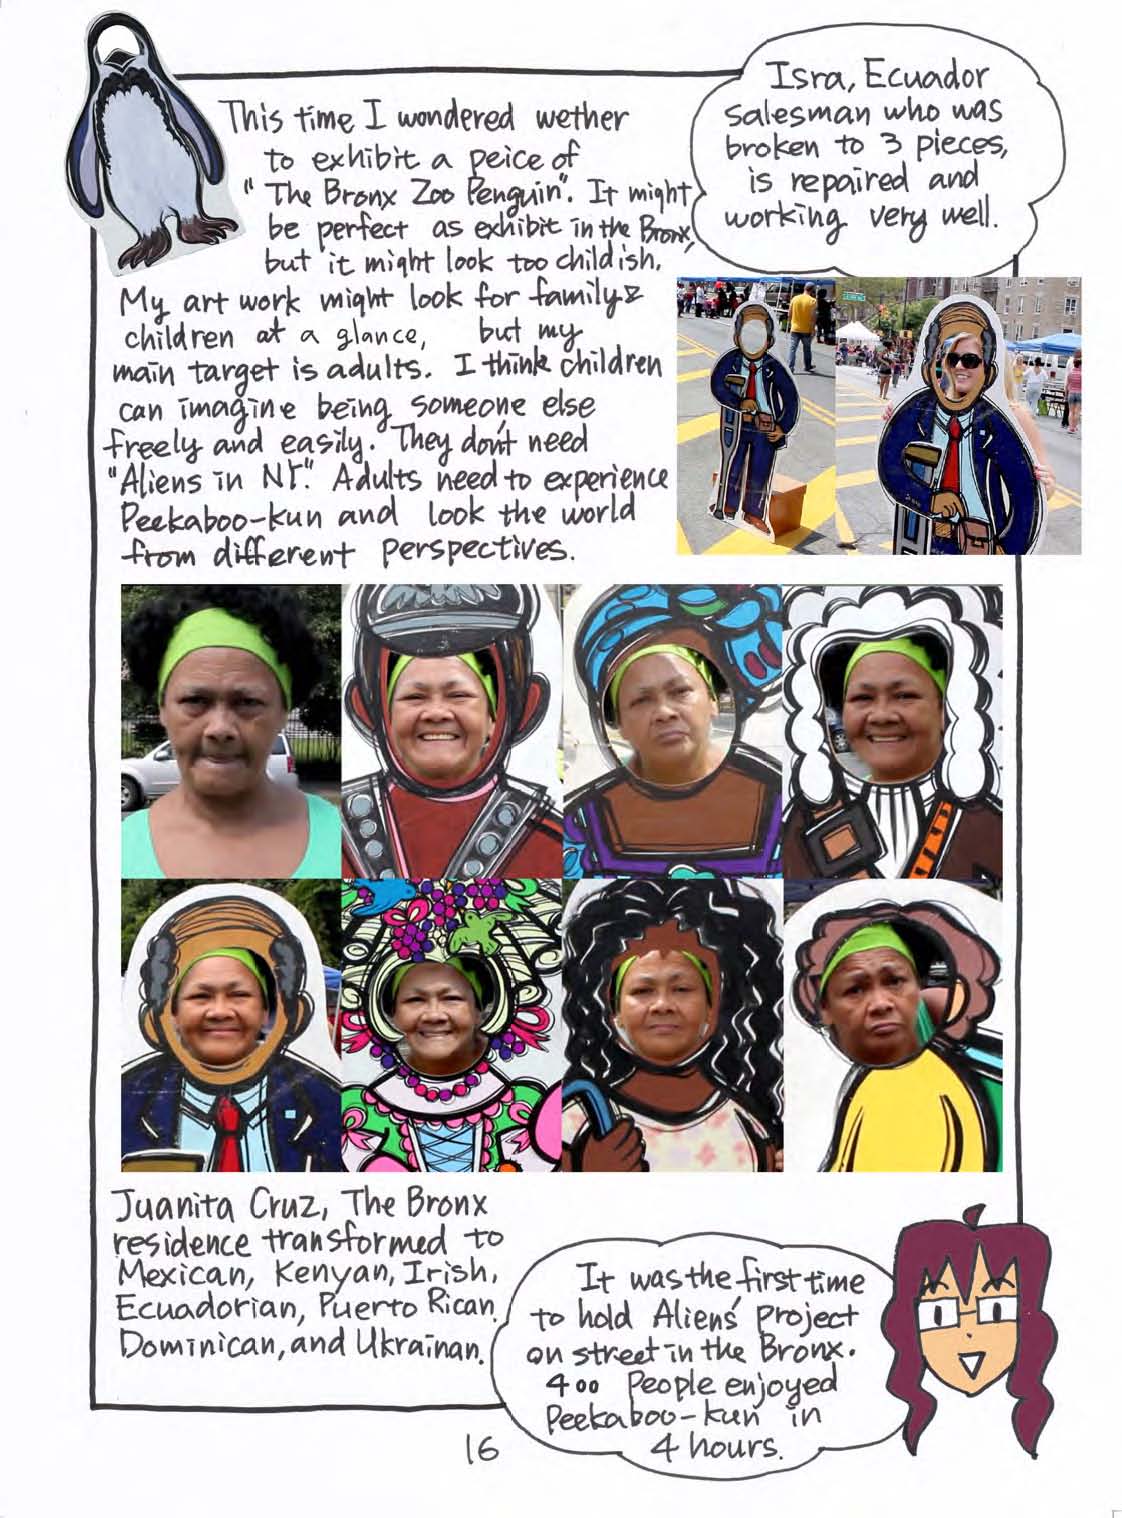 This time I wondered wether
to exhibit a peice of
"The Bronx Zoo Penguin". It might
be perfect as exhibit in the Bronx,
but it might look too childish.
My art work might look for family &
children at a glance, but my
main target is adults. I think children
can imagine being someone else
freely and easily. They don't need
"Aliens in NY." Adults need to experience
Peekaboo-kun and look the world
from different perspectives.
Isra, Ecuador
salesman who was
broken to 3 pieces,
is repaired and
working very well.
Juanita Cruz, The Bronx
residence transformed to
Mexican, Kenyan, Irish,
Ecuadorian, Puerto Rican,
Dominican, and Ukrainan.
It was the first time
to hold Aliens' project
on street in the Bronx.
400 People enjoyed
Peekaboo-kun in
4 hours.
16